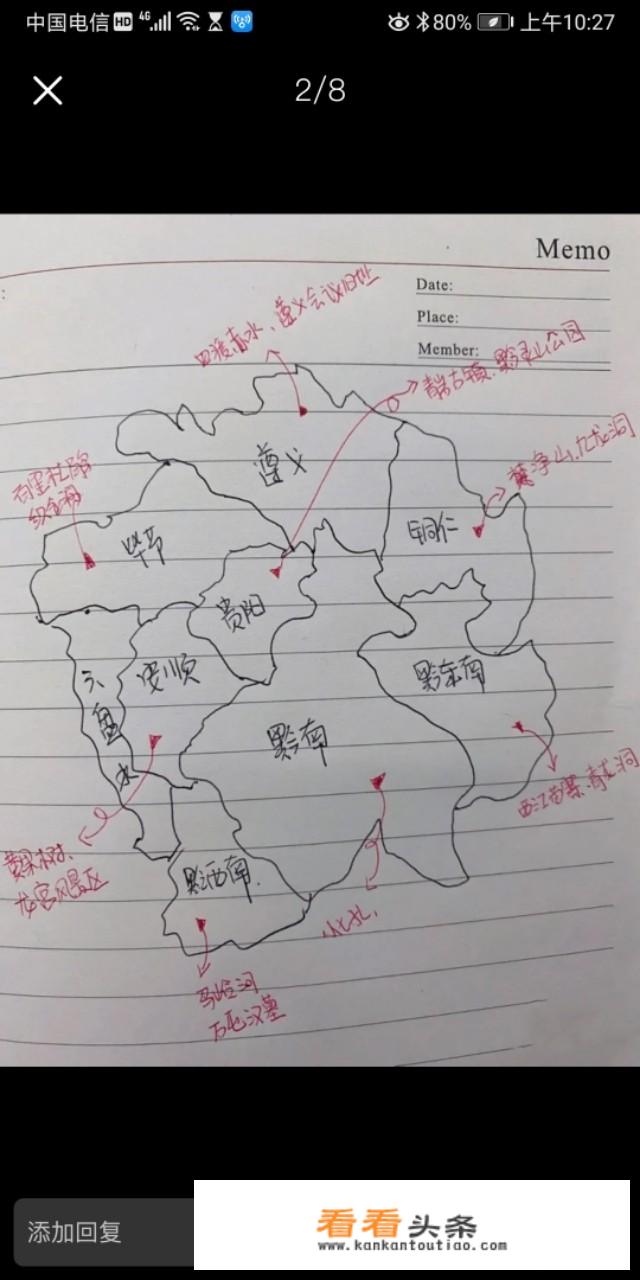 中国电信 HD 4G 80% 上午10:27
2/8
Memo
Date:
Place:
Member:
四渡赤水、遵义会议旧址
青岩古镇、黔灵山公园
梵净山、九龙洞
百里杜鹃
织金洞
遵义
铜仁
毕节
贵阳
六盘水
安顺
黔东南
黔南
西江苗寨、青龙洞
黄果树、
龙宫风景区
黔西南
小七孔
马岭河
万屯汉墓
添加回复
看看头条
www.kankantoutiao.com